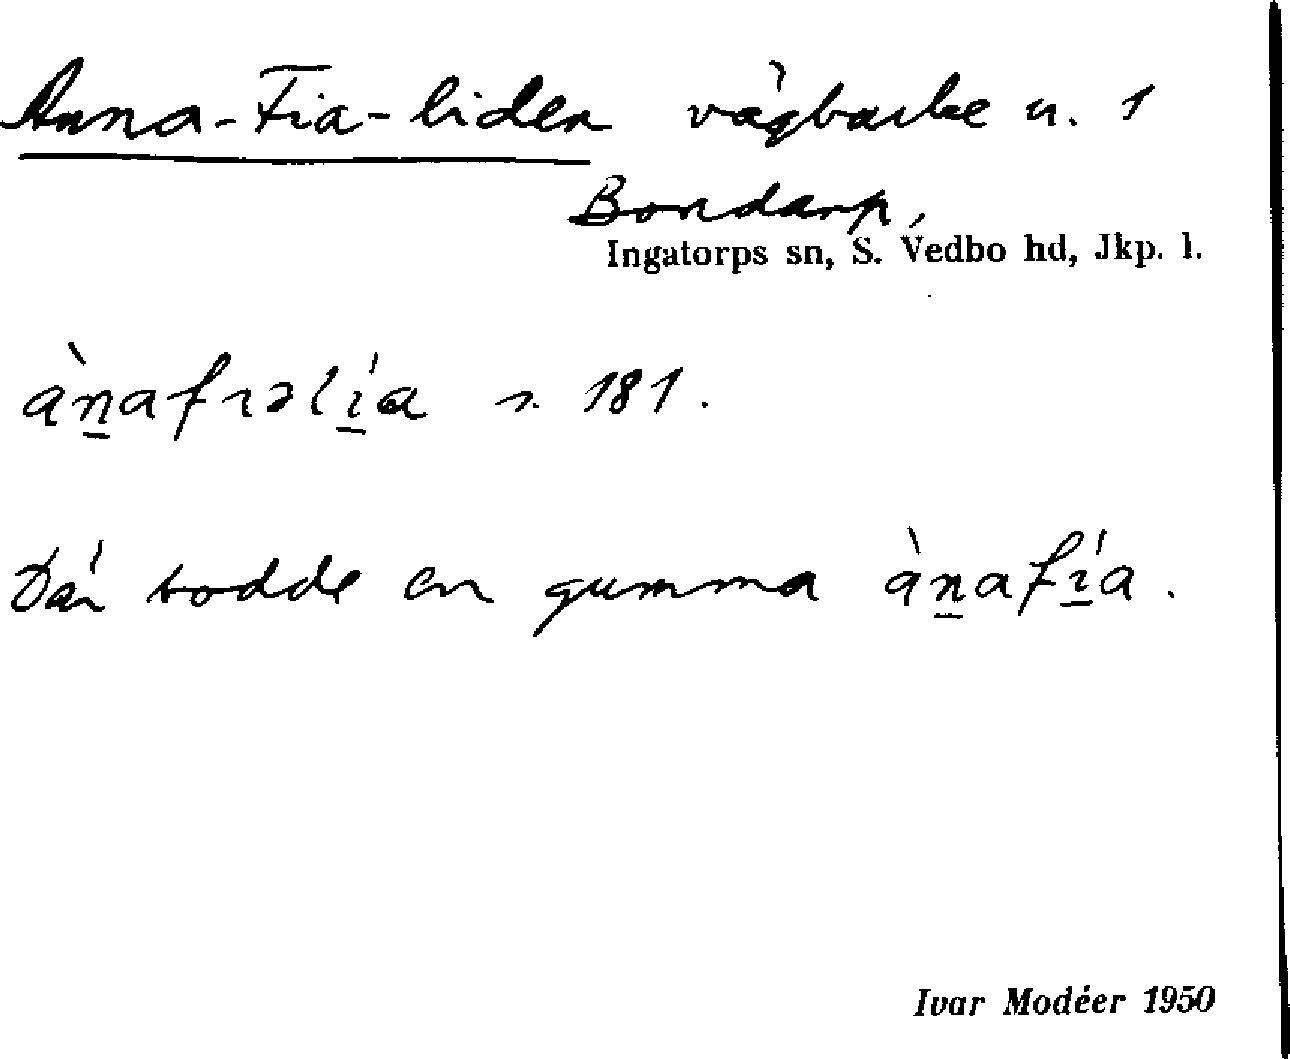 Anna-Fia-liden vägbacke n. 1
Bondarp,
Ingatorps sn, S. Vedbo hd, Jkp. l.
àn̲afıəlı̲́a s. 181.
Där bodde en gumma àn̲afı̲́a.
Ivar Modéer 1950